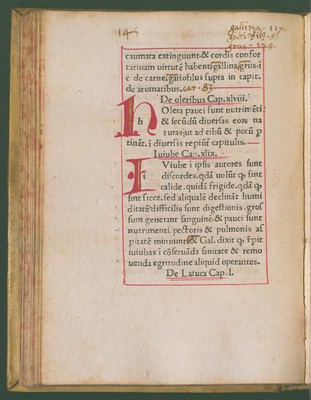 14
gallina. 117.
grus. 120.
caumata extinguunt.& cordis confor
tatiuam uirtutē habent. gallina, grus. i
ē de carne. gariofilus supra in capit.
de aromatibus. car. 83.
De oleribus Cap. xlviii.
h Olera pauci sunt nutrimēti
& secūdū diuersas eorū na
turas, ut ad cibū & potū p
tinēt. i diuersis repiūt capitulis.
Iuiube Cap. xlix.
i Viube i ipsis autores sunt
discordes. qdā uolūt q, sint
calide. quidā frigide. qdā q,
sint sicce. sed aliqualē declināt humi
ditatē difficilis sunt digestionis. gros
sum generant sanguinē. & pauci sunt
nutrimenti. pectoris & pulmonis as
pitatē minuunt. & Gal. dixit q, r̄pit
iuiubas i cōseruāda sanitate & remo
uenda egritudine aliquid operantes.
De Latuca Cap. l.